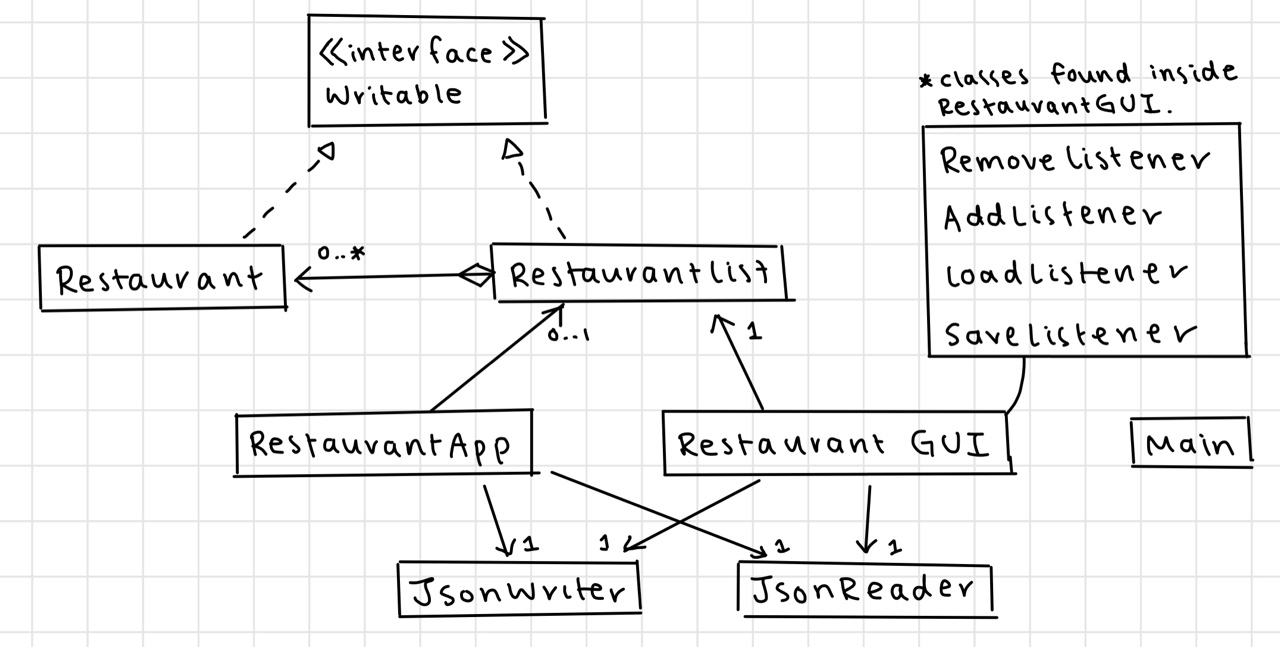 <<interface>>
Writable
*classes found inside
RestaurantGUI.
RemoveListener
AddListener
LoadListener
SaveListener
Restaurant
0..*
RestaurantList
0..1
1
RestaurantApp
Restaurant GUI
Main
1
1
1
1
JsonWriter
JsonReader